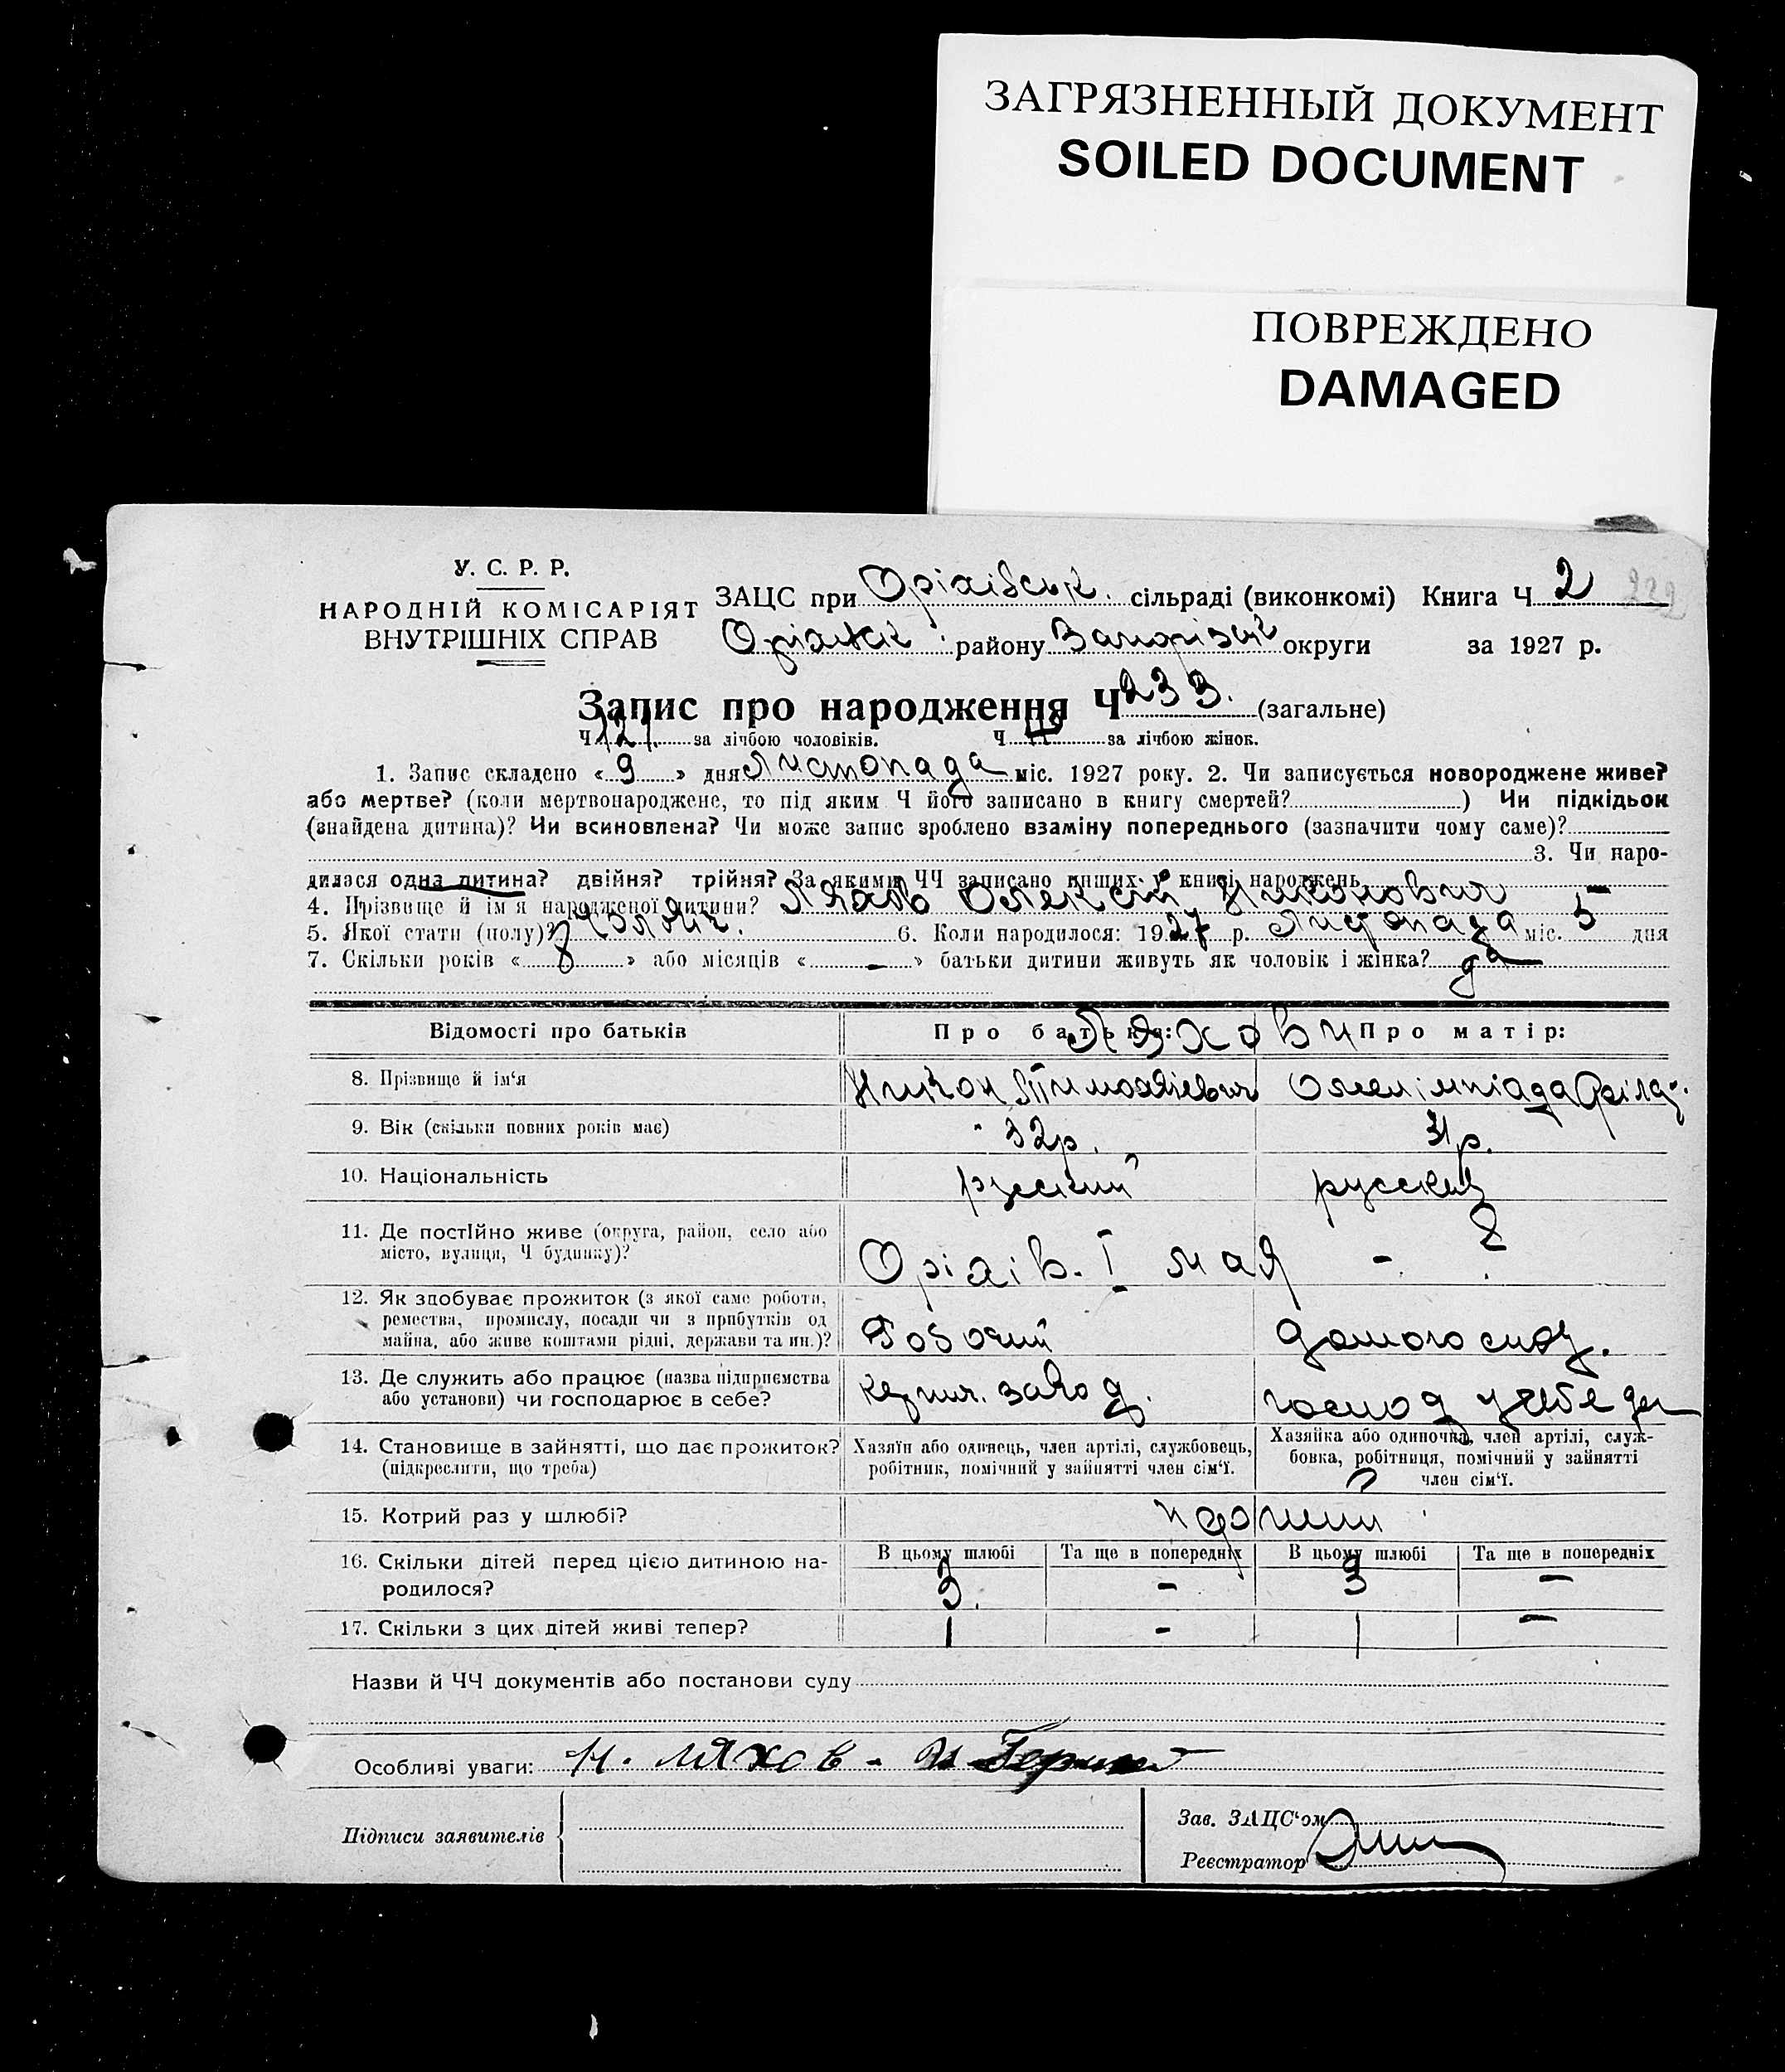 ЗАГРЯЗНЕННЫЙ ДОКУМЕНТ
SOILED DOCUMENT
ПОВРЕЖДЕНО
DAMAGED
У. С. Р. Р.
НАРОДНІЙ КОМІСАРІЯТ
ВНУТРІШНІХ СПРАВ
ЗАЦС при Оріхівськ. сільраді (виконкомі) Книга Ч 2 222
району Запорізьк округи за 1927 р.
Запис про народження Ч 233. (загальне)
Ч 121. за лічбою чоловіків. Ч за лічбою жінок.
1. Запис складено « 9 » дня Листопада міс. 1927 року. 2. Чи записується новороджене живе?
або мертве? (коли мертвонароджене, то під яким Ч його записано в книгу смертей? ) Чи підкідьок
(знайдена дитина)? Чи всиновлена? Чи може запис зроблено взаміну попереднього (зазначити чому саме)?
3. Чи наро-
дилася одна дитина? двійня? трійня? За якими ЧЧ записано инших у книзі народжень
4. Прізвище й ім'я народженої дитини? Ляхов Олексій Никонович
5. Якої стати (полу)? 6. Коли народилося: 1927 р. Листопада міс. 5 дня
7. Скільки років « 8 » або місяців « - » батьки дитини живуть як чоловік і жінка? да
Відомості про батьків Про батька: Ляхови Про матір:
8. Прізвище й ім'я Никон Тимофієвич
9. Вік (скільки повних років має) 32р. 31р.
10. Національність русский русский
11. Де постійно живе (округа, район, село або
місто, вулиця, Ч будинку)? Оріхів. I мая - 8
12. Як здобуває прожиток (з якої саме роботи,
ремества, промислу, посади чи з прибутків од
майна, або живе коштами рідні, держави та ин.)? Робочий домогоспод.
13. Де служить або працює (назва підприємства
або установи) чи господарює в себе? завод.
14. Становище в зайнятті, що дає прожиток?
(підкреслити, що треба)
Хазяїн або одинець, член артілі, службовець,
робітник, помічний у зайнятті член сім'ї.
Хазяйка або одиночка, член артілі, служ-
бовка, робітниця, помічний у зайнятті
член сім'ї.
15. Котрий раз у шлюбі?
16. Скільки дітей перед цією дитиною на-
родилося?
В цьому шлюбі Та ще в попередніх В цьому шлюбі Та ще в попередніх
3. - 3 -
17. Скільки з цих дітей живі тепер? 1 - 1 -
Назви й ЧЧ документів або постанови суду
Особливі уваги: Н. Ляхов -
Підписи заявителів
Зав. ЗАЦС'ом
Реєстратор